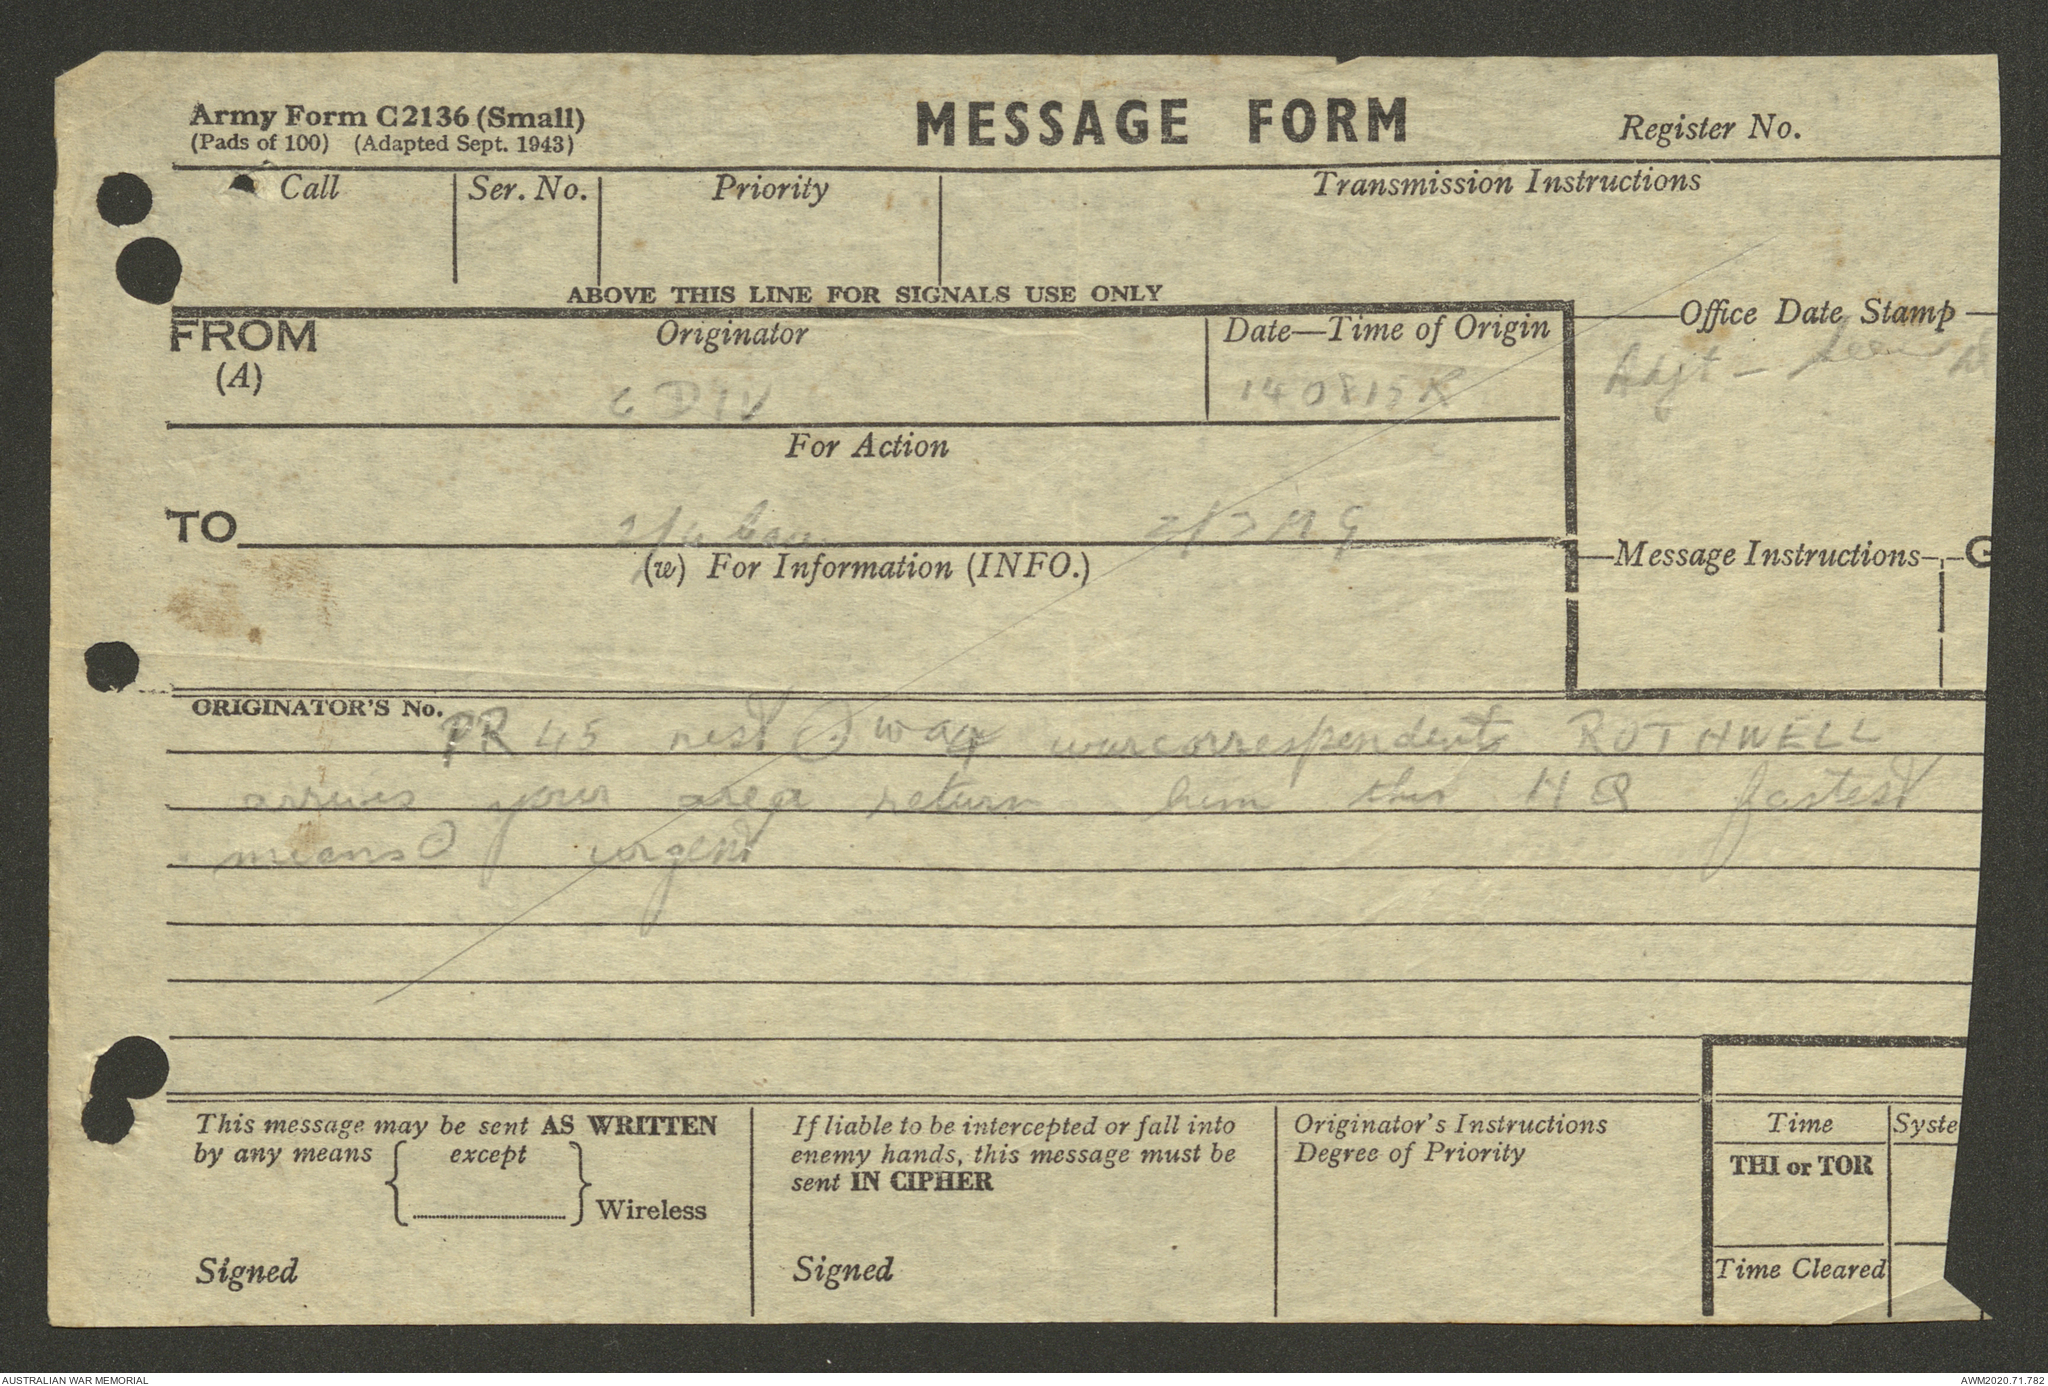 Army Form C2136 (Small)
(Pads of 100) (Adapted Sept. 1943)
MESSAGE FORM
Register No.
Call
Ser. No.
Priority
Transmission Instructions
ABOVE THIS LINE FOR SIGNALS USE ONLY
FROM
(A)
Originator
6 DIV
Date—Time of Origin
140815K
Office Date Stamp
Adjt –
For Action
TO
2/3 MG
(w) For Information (INFO.)
Message Instructions
G
ORIGINATOR'S No.
PR 45 rest warcorrespondent ROTHWELL
arrives your area return him this HQ fastest
means urgent
This message may be sent AS WRITTEN
by any means except
Wireless
Signed
If liable to be intercepted or fall into
enemy hands, this message must be
sent IN CIPHER
Signed
Originator's Instructions
Degree of Priority
Time
Syste
THI or TOR
Time Cleared
AUSTRALIAN WAR MEMORIAL
AWM2020.71.782